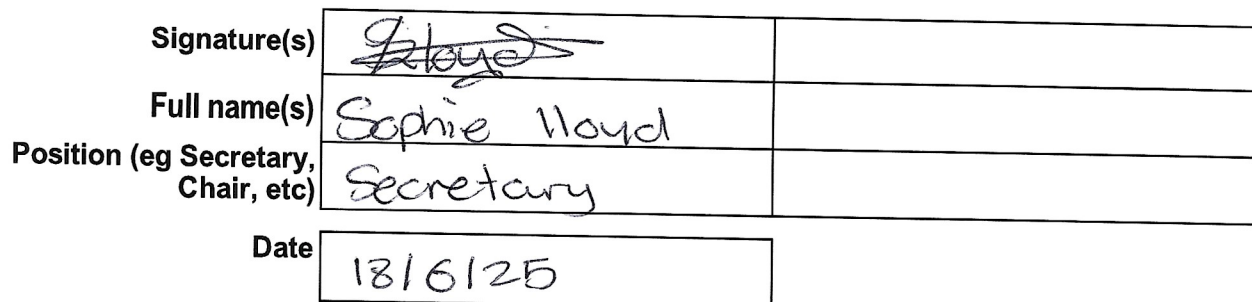 Signature(s) Slloyd
Full name(s) Sophie lloyd
Position (eg Secretary,
Chair, etc) Secretary
Date 18/6/25